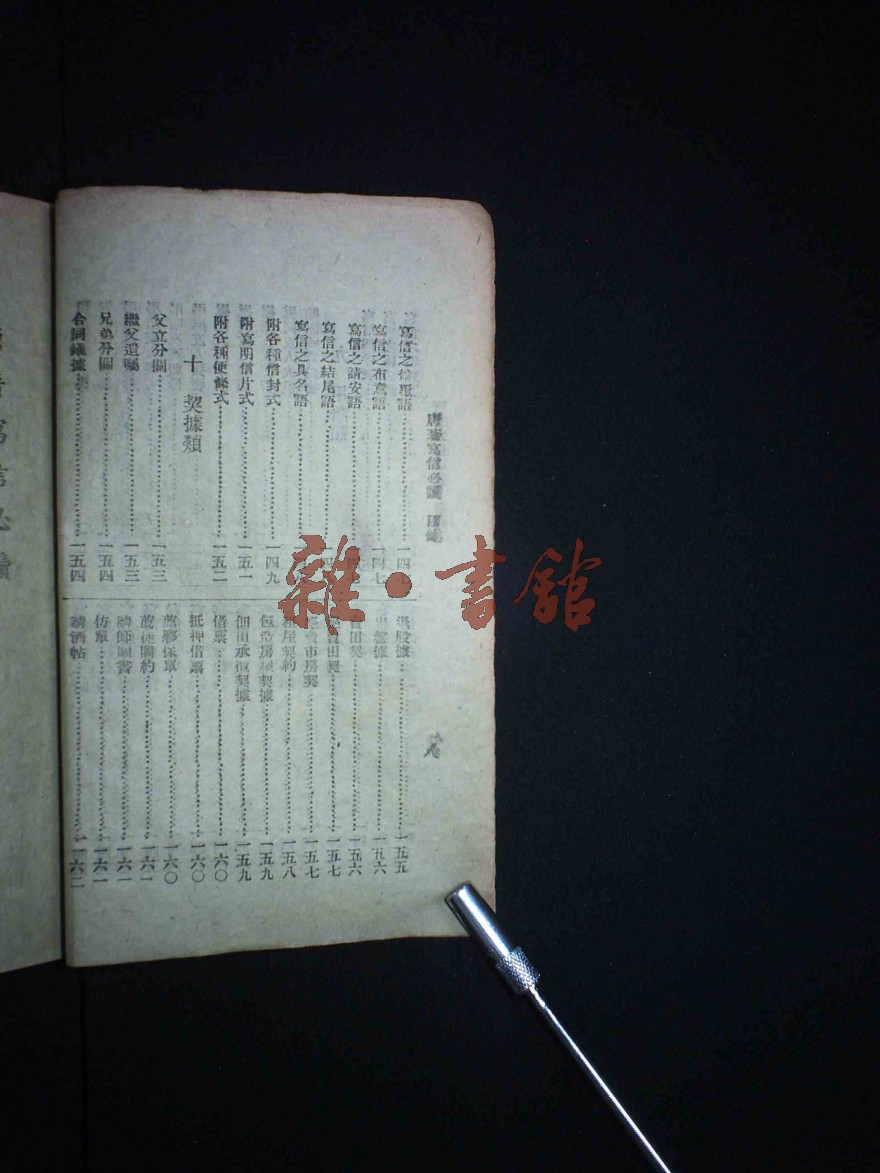 唐著寫信必讀 目錄
寫信之 語 一四七
寫信之布意語 一四七
寫信之請安語
寫信之結尾語
寫信之具名語
附各種信封式 一四九
附寫明信片式 一五一
附各種便條式 一五二
十 契據類
父立分關 一五三
繼父遺囑 一五三
兄弟分關 一五四
合同議據 一五四
退股據 一五五
盤據 一五六
田契 一五六
賣田契 一五七
賣市房契 一五七
租屋契約 一五八
包造房屋契據 一五九
佃田承種契據 一五九
借票 一六〇
抵押借票 一六〇
薦夥保單 一六〇
薦徒關約 一六一
請師關書 一六一
仿單 一六一
請酒帖 一六二
雜·書館
寫信必讀